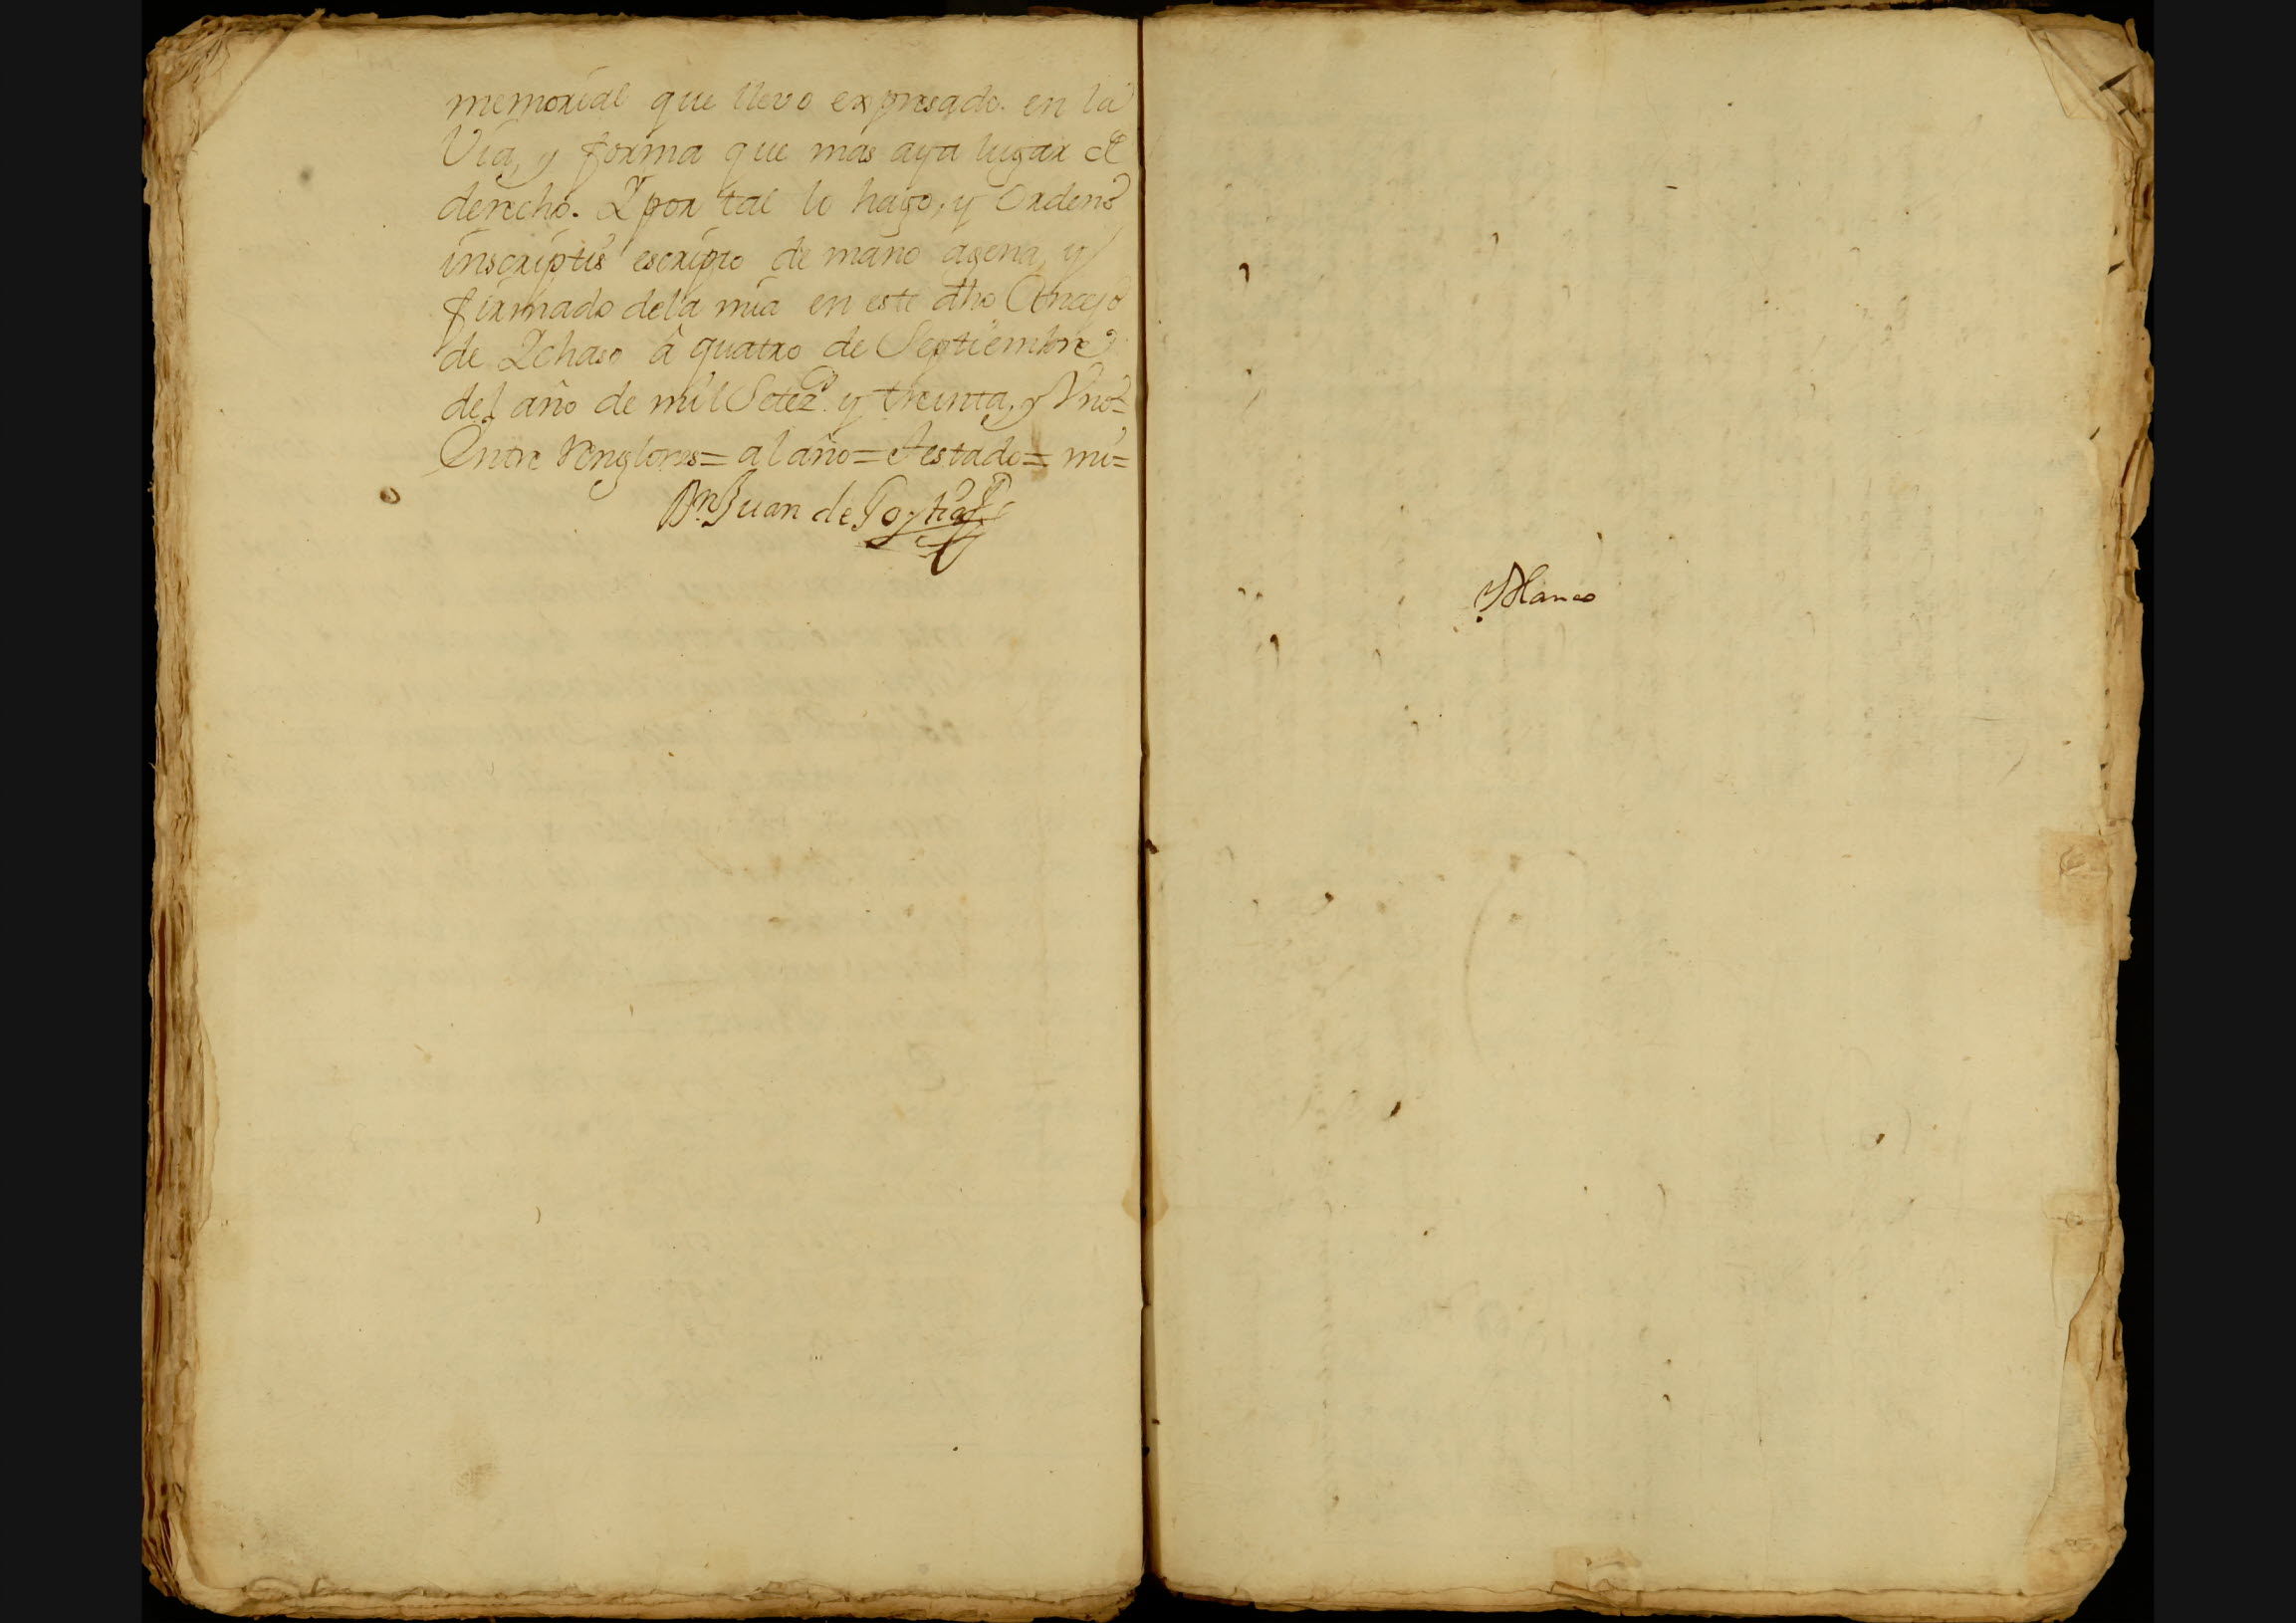 memorial que llevo expresado. en la
Via, y forma que mas aya lugar de
derecho. Y por tal lo hago, y Ordeno
inscriptis escripto de mano agena, y
firmado dela mia en este dho Conçejo
de Ychaso â quatro de Septiembre
del año de mil Setez.s y treinta, y Vno=
Entre Renglones= al año= Testado= mi=
Dn. Juan de
Blanco